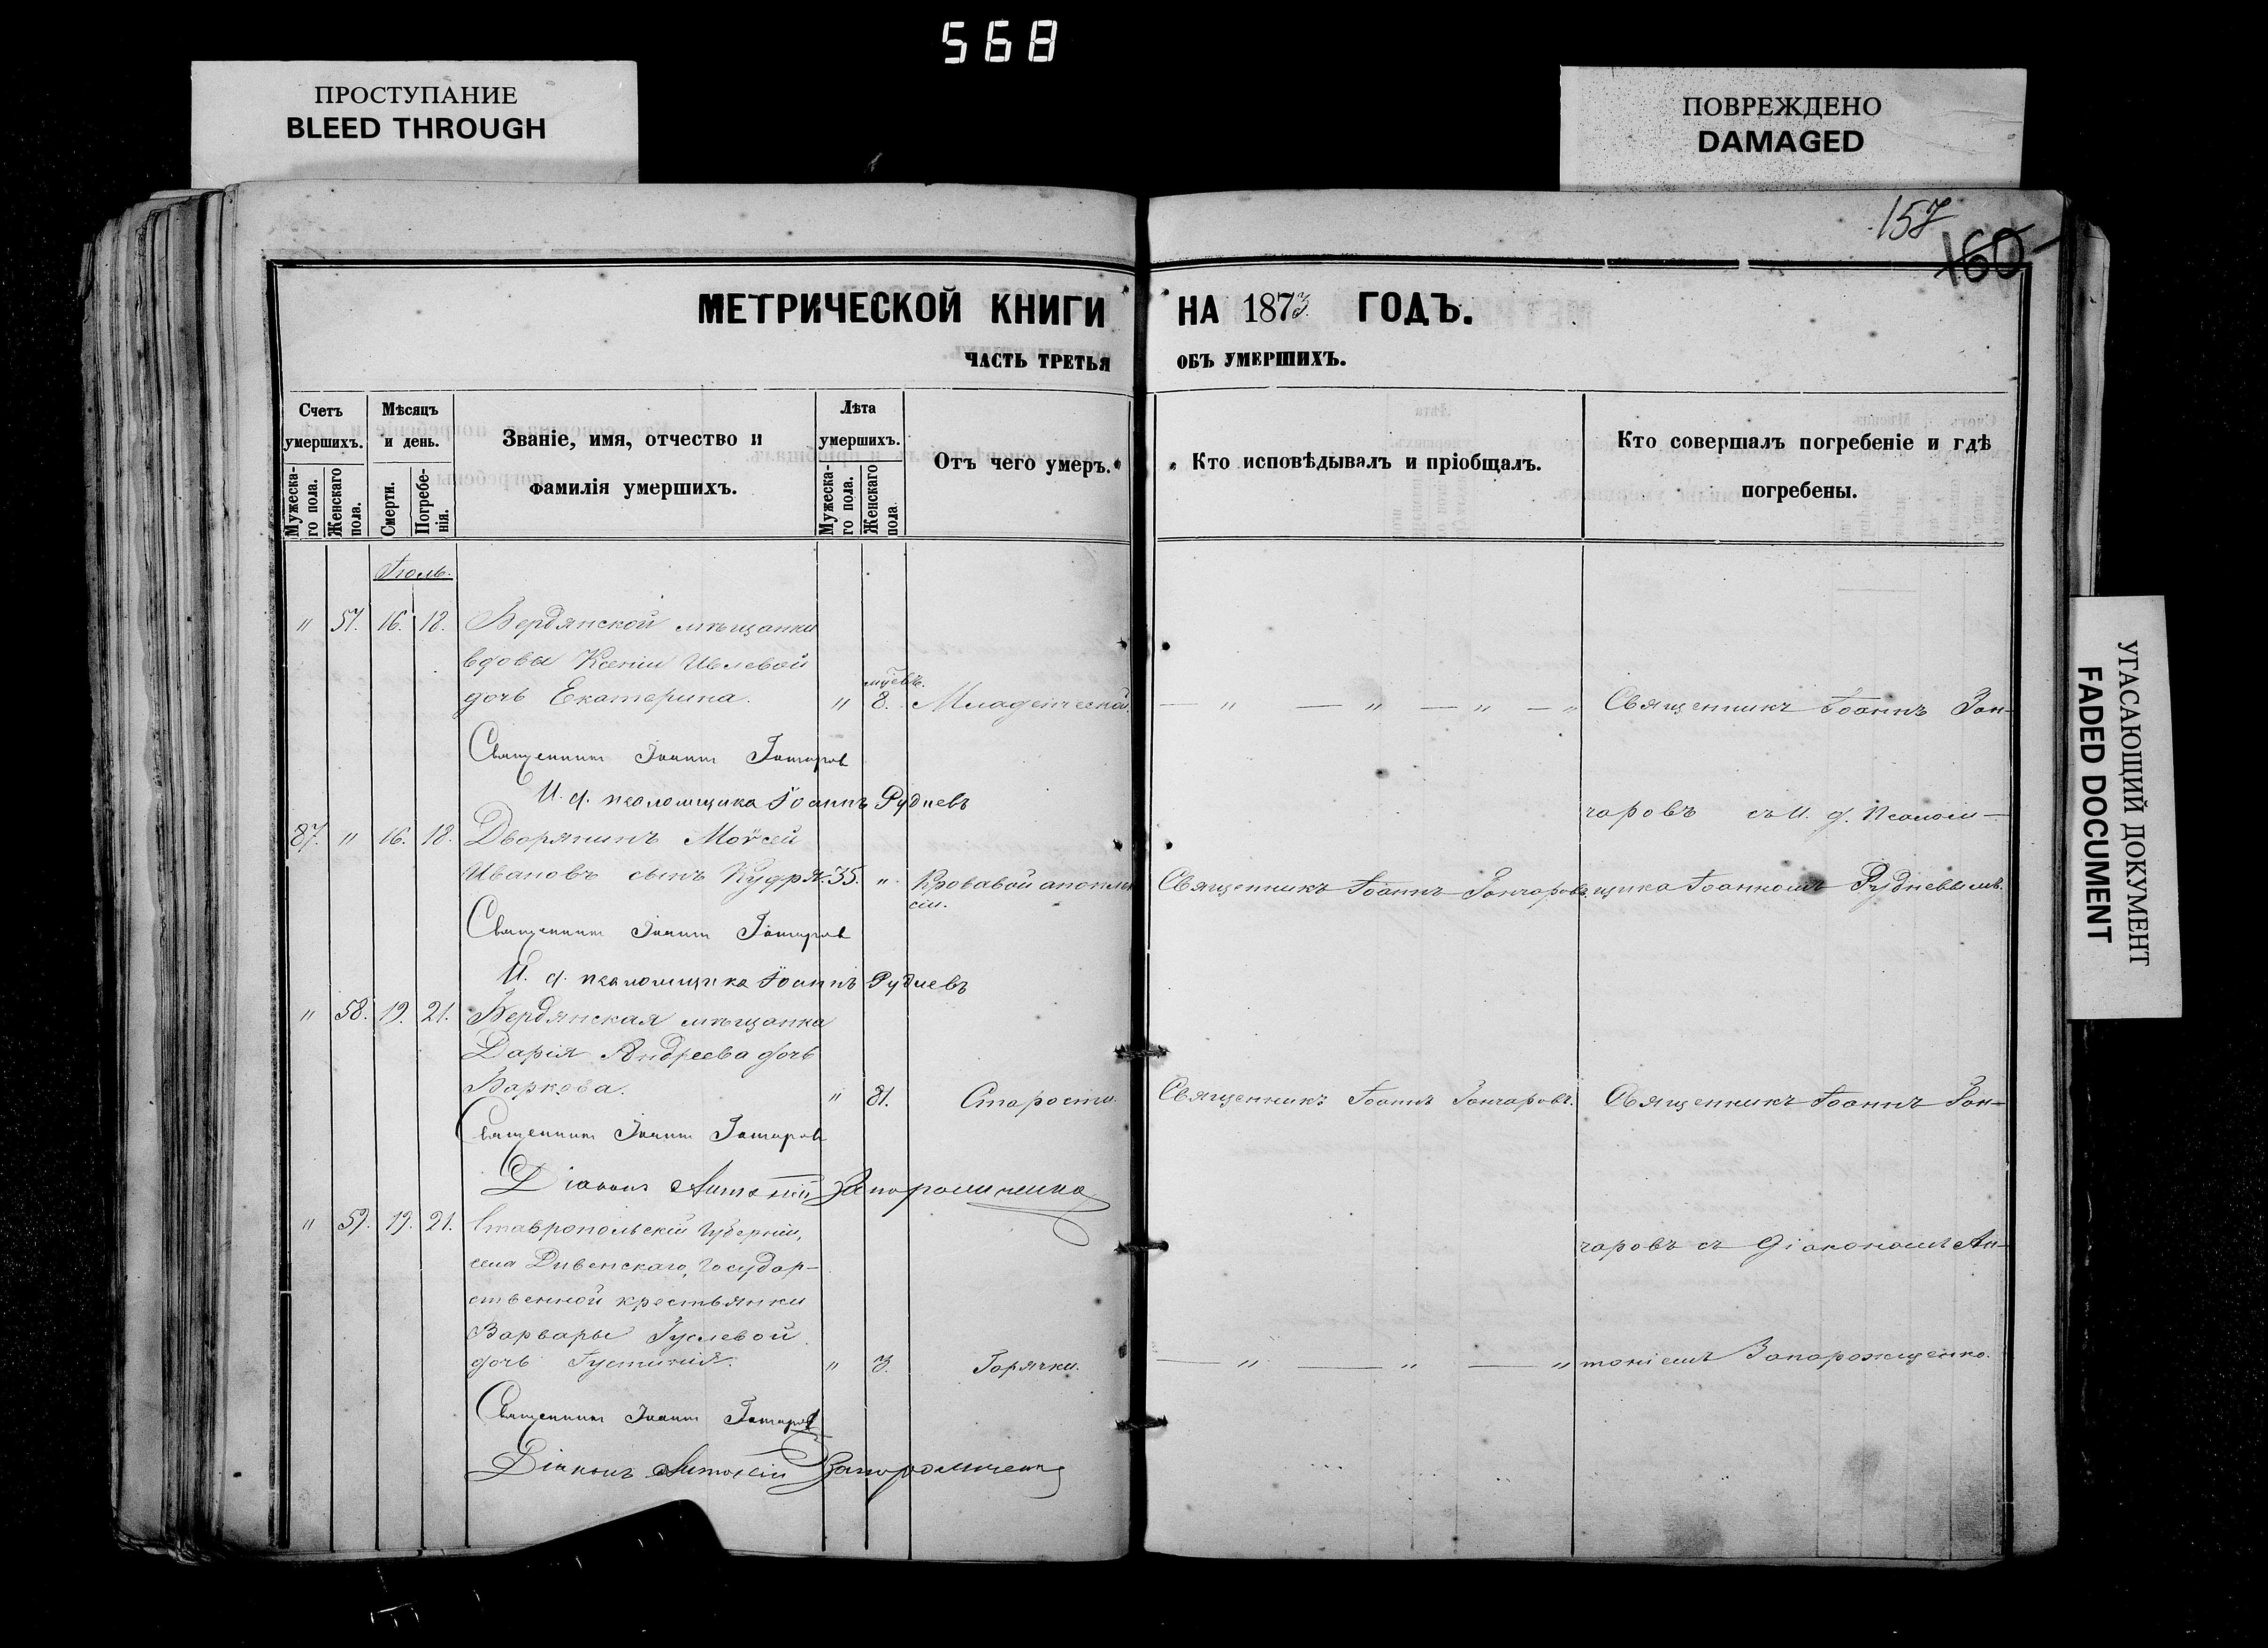 568
ПРОСТУПАНИЕ
BLEED THROUGH
ПОВРЕЖДЕНО
DAMAGED
157
160
МЕТРИЧЕСКОЙ КНИГИ НА 1873 ГОДЪ.
ЧАСТЬ ТРЕТЬЯ ОБЪ УМЕРШИХЪ.
Счетъ умершихъ.
Мужеска-го пола.
Женскаго пола.
Мѣсяцъ и день.
Смерти.
Погребе-нія.
Званіе, имя, отчество и
фамилія умершихъ.
Лѣта умершихъ.
Мужеска-го пола.
Женскаго пола.
Отъ чего умеръ.
Кто исповѣдывалъ и пріобщалъ.
Кто совершалъ погребеніе и гдѣ
погребены.
Іюль.
" 57. 16. 18. Бердянской мѣщанки
вдовы Ксеніи Ивлевой
мцевъ.
дочь Екатерина. " 8. Младенческой. — " — " — " — " Священникъ Іоаннъ Гон-
Священник Іоанн Гончаров
И. д. псаломщика Іоаннъ Рудневъ
чаровъ съ И. д. Псалом-
87. " 16. 18. Дворянинъ Моѵсей
Ивановъ сынъ Кудря. 35. " Кровавой апоплек
сіи.
Священникъ Іоаннъ Гончаровъ. щика Іоанномъ Рудневымъ.
Священник Іоанн Гончаров
И. д. псаломщика Іоаннъ Рудневъ
" 58. 19. 21. Бердянская мѣщанка
Дарія Андреева дочь
Баркова. " 81. Старости. Священникъ Іоаннъ Гончаровъ. Священникъ Іоаннъ Гон-
Священник Іоанн Гончаров
Діаконъ Антоній Запорожченко
" 59. 19. 21. Ставропольскій Губерніи,
чаровъ съ Діакономъ Ан-
села Дивенскаго, Государ-
ственной крестьянки
Варвары Гуслевой
дочь Густинія. " 3. Горячки. — " — " — " тоніемъ Запорожценко.
Священник Іоанн Гончаров
Діаконъ Антоній Запорожченко
УГАСАЮЩИЙ ДОКУМЕНТ
FADED DOCUMENT